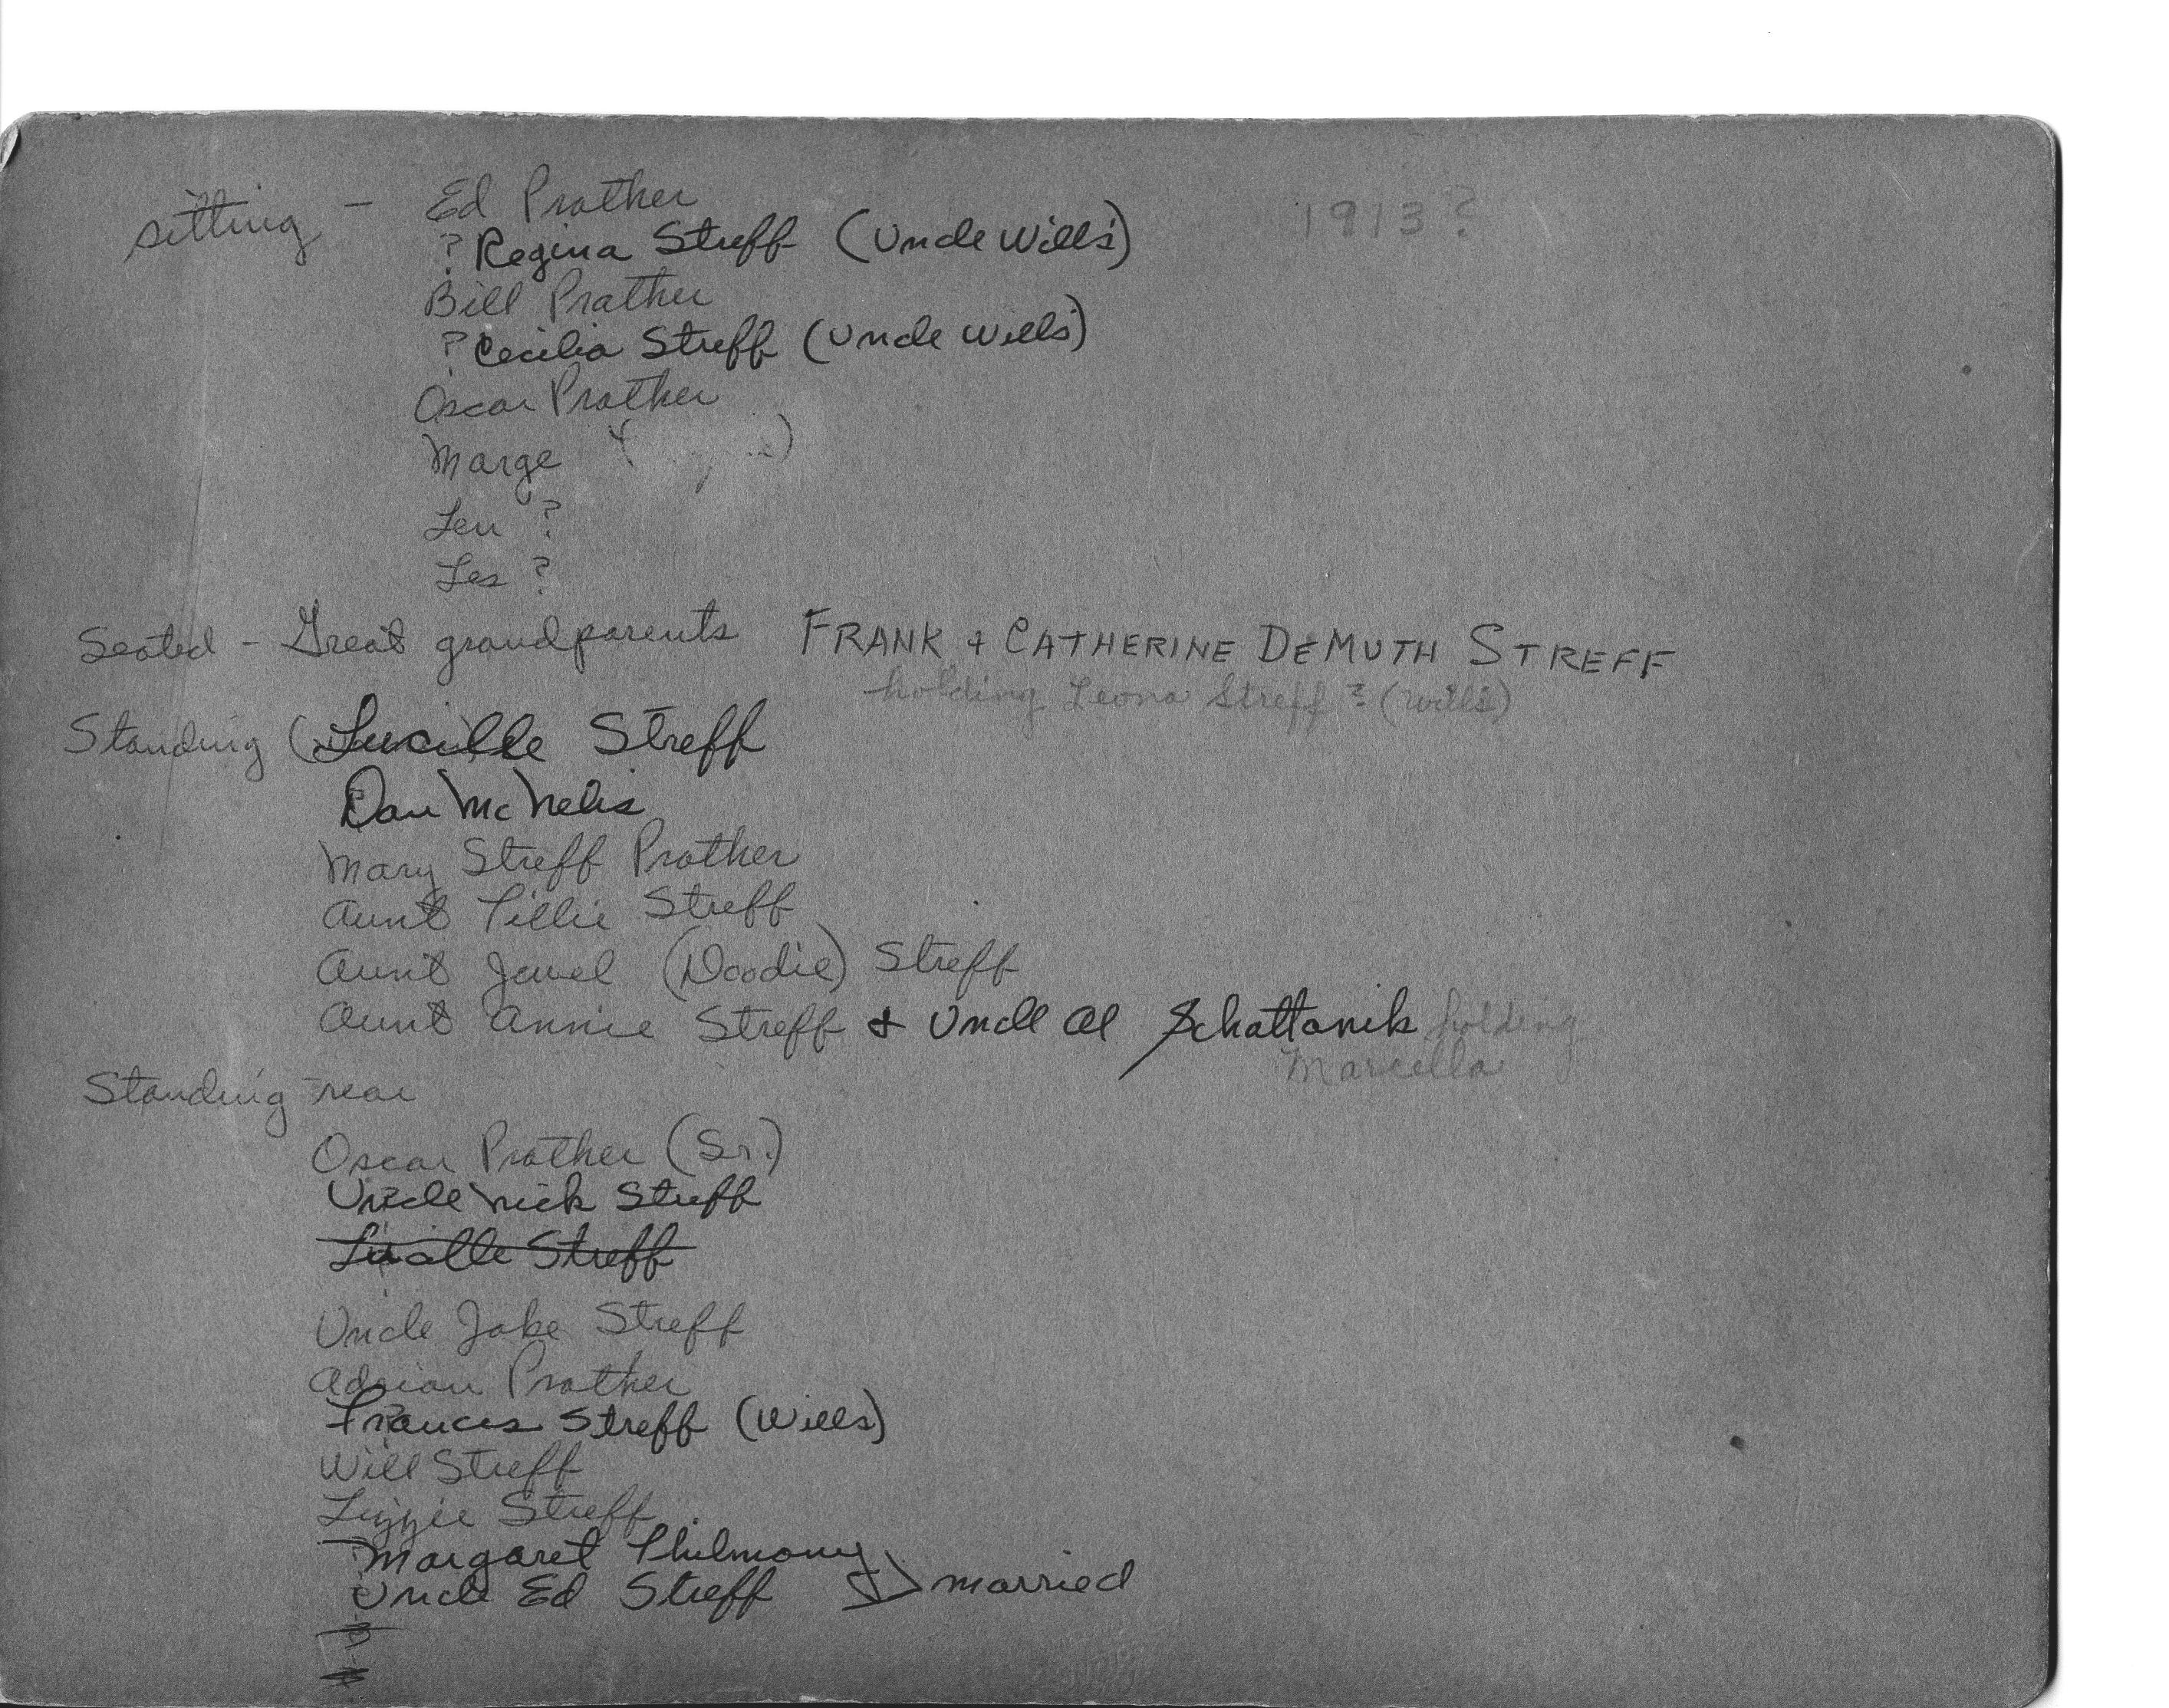 1913?
sitting - Ed Prather
? Regina Streff (Uncle Will's)
Bill Prather
? Cecilia Streff (Uncle Will's)
Oscar Prather
Marge
Len ?
Les ?
Seated - Great grandparents FRANK + CATHERINE DEMUTH STREFF
holding Leona Streff ? (Will's)
Standing (Lucille Streff
Dan McNelis
Mary Streff Prather
Aunt Tillie Streff
Aunt Jewel (Doodie) Streff
Aunt Annie Streff + Uncle Al Schattanik holding
Marcella
Standing rear
Oscar Prather (Sr.)
Uncle Nick Streff
Lucille Streff
Uncle Jake Streff
Adrian Prather
Frances Streff (Wills)
Will Streff
Lizzie Streff
Margaret Philmony
Uncle Ed Streff > married
?